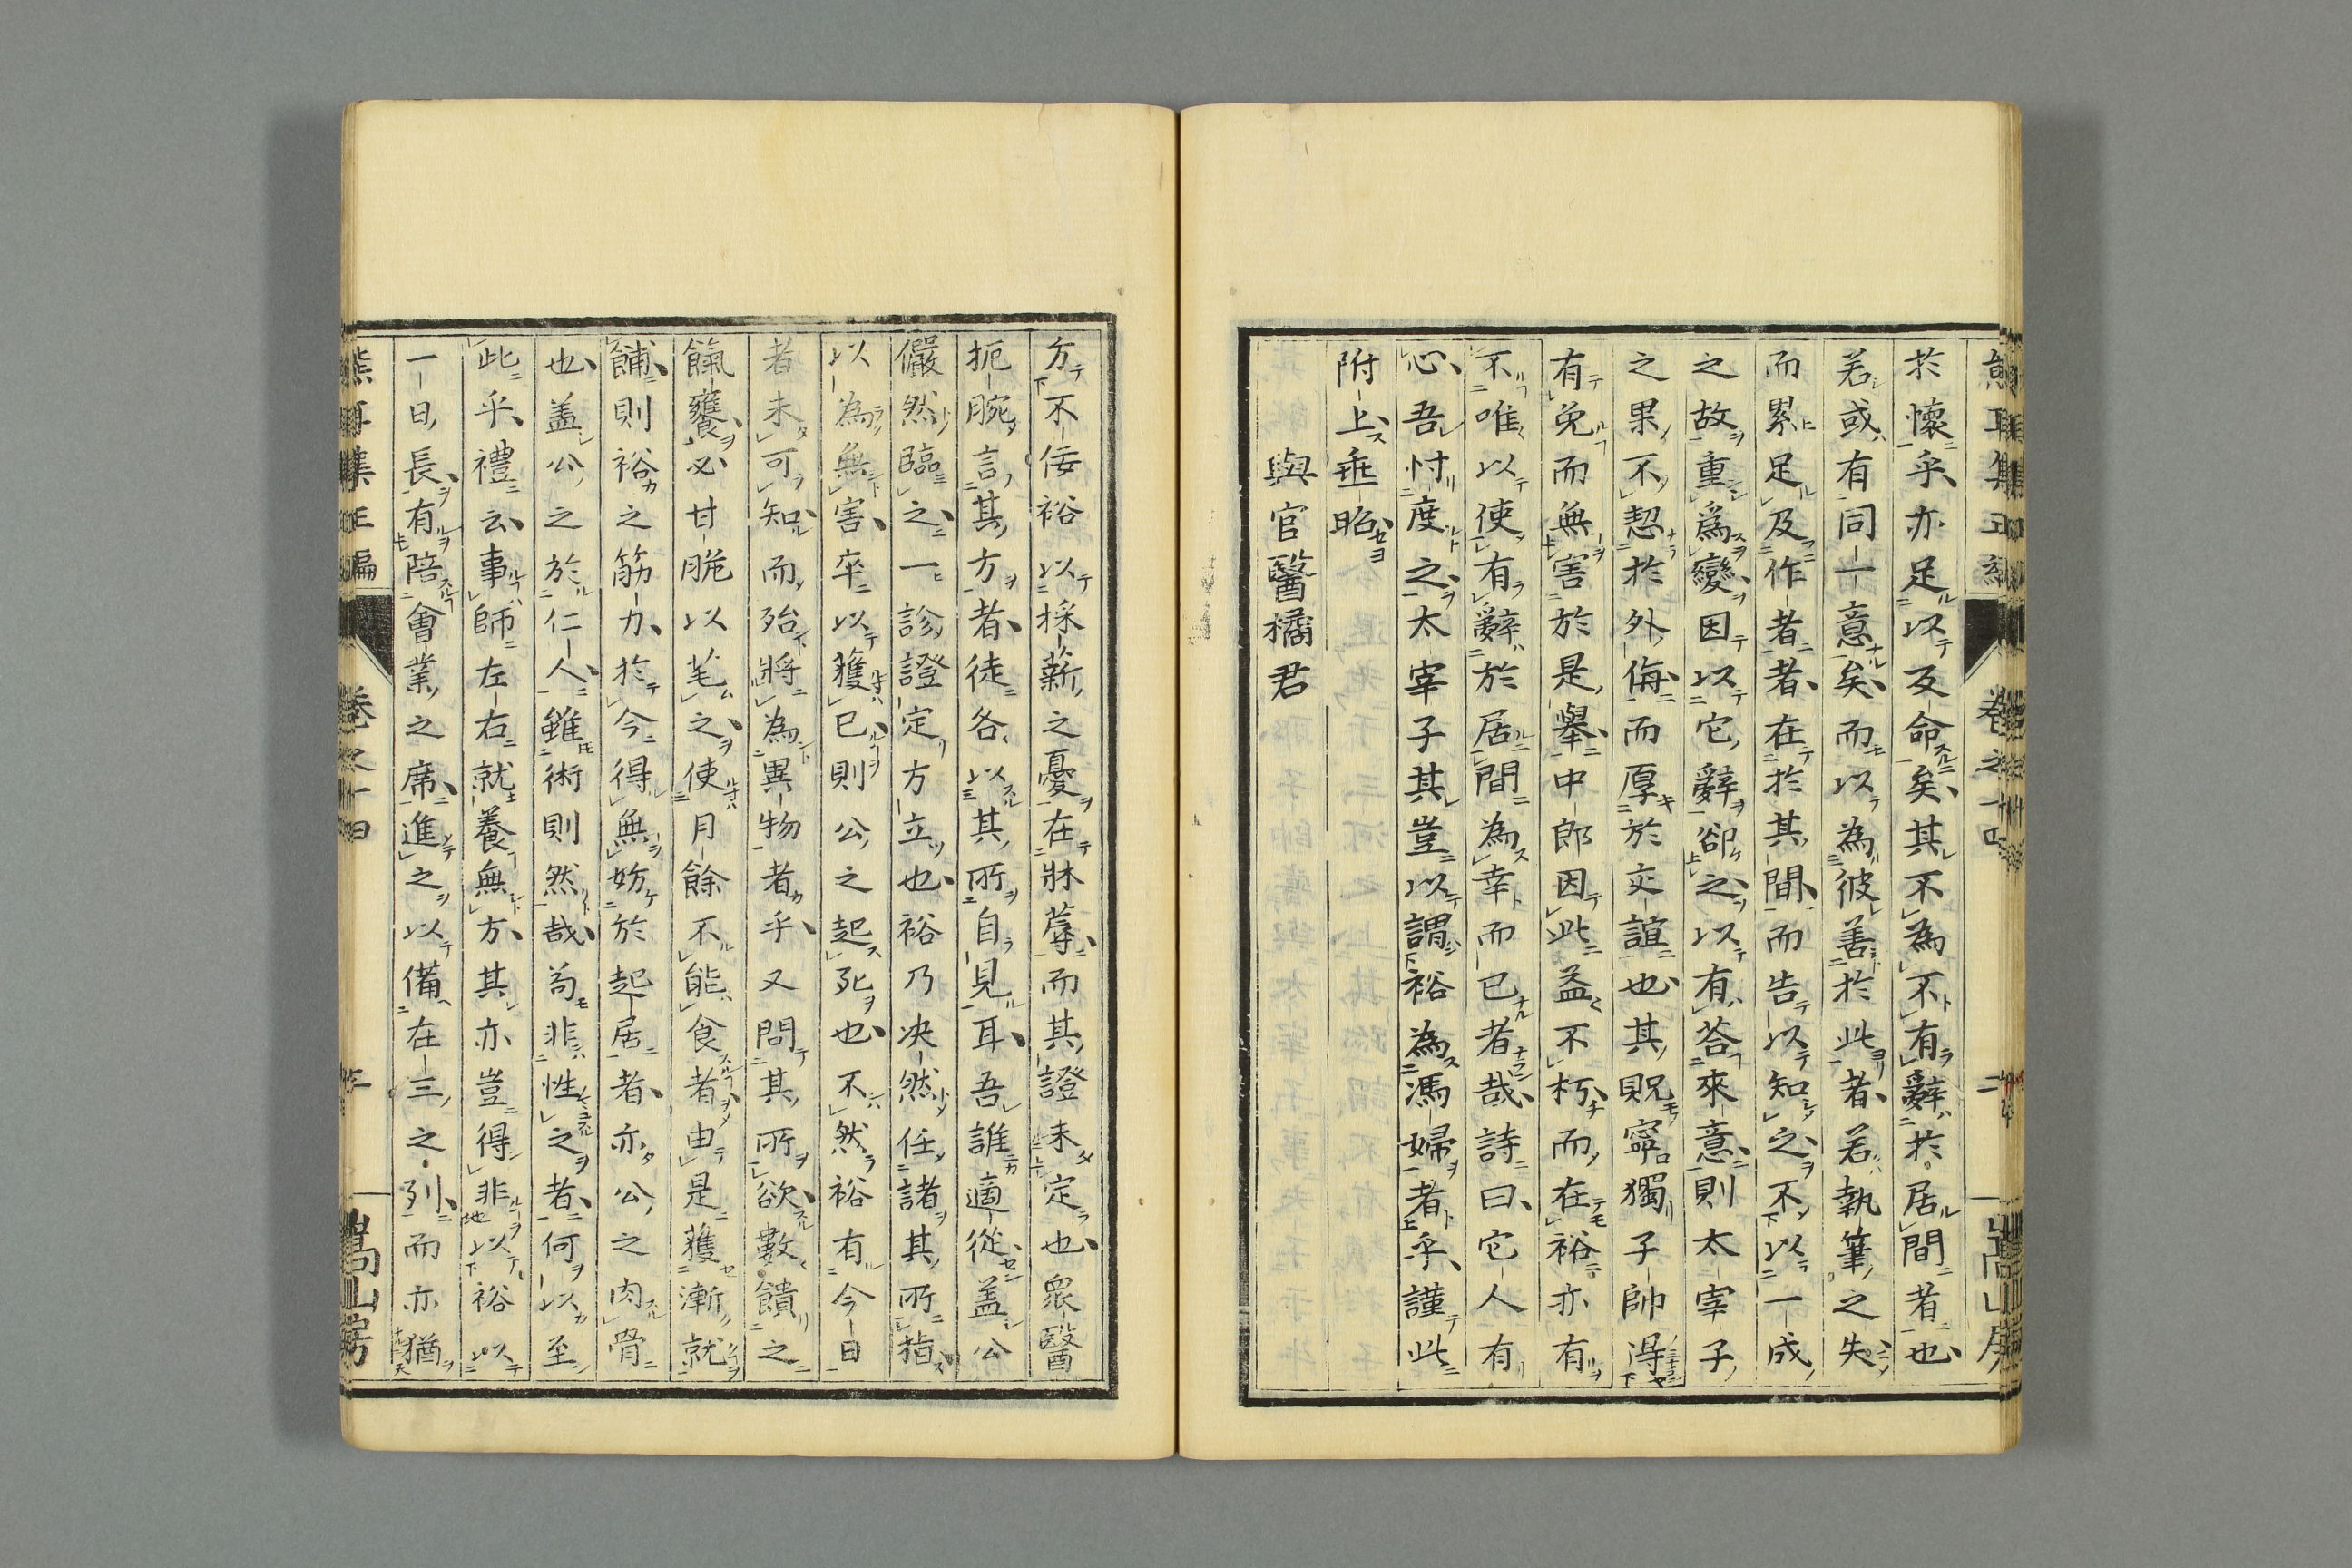 於懷乎亦足以反命矣其不為不有辭於居間者也
若或有同一意矣而以為彼善於此者若執筆之失
而累足及作者者在於其間而告以知之不以一成
之故重為變因以它辭卻之以有荅來意則太宰子
之果不恝於外侮而厚於交誼也其貺寧獨子帥得
有免而無害於是舉中郎因此益不朽而在裕亦有
不唯以使有辭於居間為幸而已者哉詩曰它人有
心吾忖度之太宰子其豈以謂裕為馮婦者乎謹此
附上垂昭
與官醫橘君
方不佞裕以採薪之憂在牀蓐而其證未定也眾醫
扼腕言其方者徒各以其所自見耳吾誰適從蓋公
儼然臨之一診證定方立也裕乃决然任諸其所指
以為無害卒以獲已則公之起死也不然裕有今日
者未可知而殆將為異物者乎又問其所欲數饋之
餼饔必甘脆以芼之使月餘不能食者由是獲漸就
餔則裕之筋力於今得無妨於起居者亦公之肉骨
也蓋公之於仁人雖術則然哉苟非性之者何以至
此乎禮云事師左右就養無方其亦豈得非以裕以
一日長有陪會業之席進之以備在三之列而亦猶
熊耳集正編 卷之十四 嵩山房